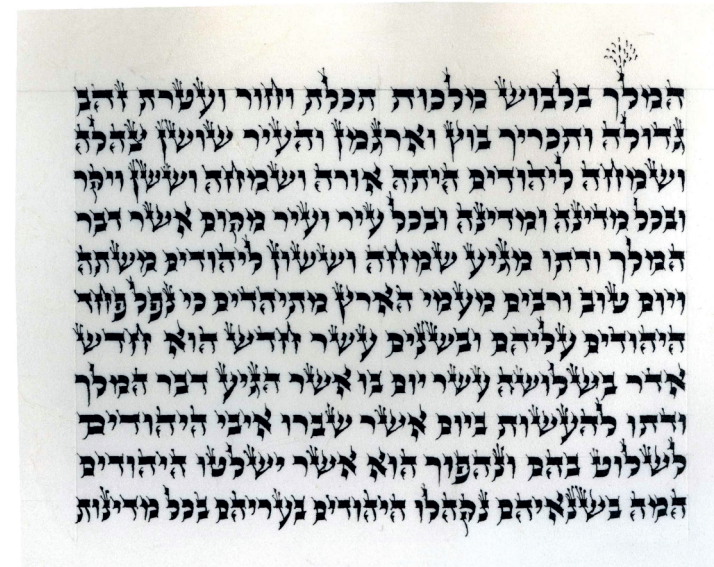 המלך בלבוש מלכות תכלת וחור ועטרת זהב
גדולה ותכריך בוץ וארגמן והעיר שושן צהלה
ושמחה ליהודים היתה אורה ושמחה וששן ויקר
ובכל מדינה ומדינה ובכל עיר ועיר מקום אשר דבר
המלך ודתו מגיע שמחה וששון ליהודים משתה
ויום טוב ורבים מעמי הארץ מתיהדים כי נפל פחד
היהודים עליהם ובשנים עשר חדש הוא חדש
אדר בשלושה עשר יום בו אשר הגיע דבר המלך
ודתו להעשות ביום אשר שברו איבי היהודים
לשלוט בהם ונהפוך הוא אשר ישלטו היהודים
המה בשנאיהם נקהלו היהודים בעריהם בכל מדינות